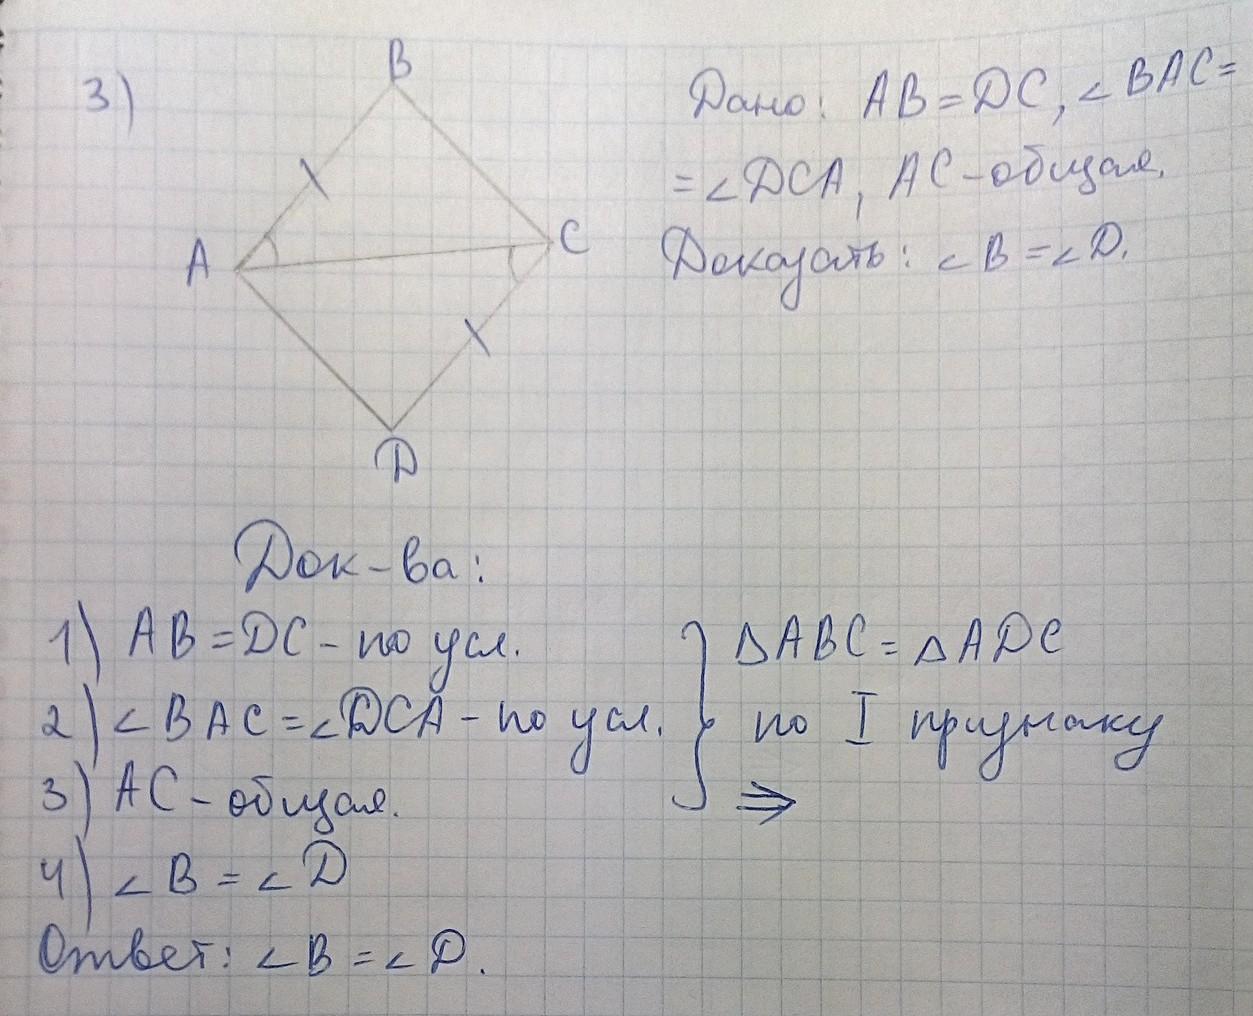 3)
B
A
C
D
Дано: AB = DC, ∠BAC =
= ∠DCA, AC - общая.
Доказать: ∠B = ∠D.
Док-ва:
1) AB = DC - по усл.
2) ∠BAC = ∠DCA - по усл.
3) AC - общая.
△ABC = △ADC
по I признаку
⇒
4) ∠B = ∠D
Ответ: ∠B = ∠D.